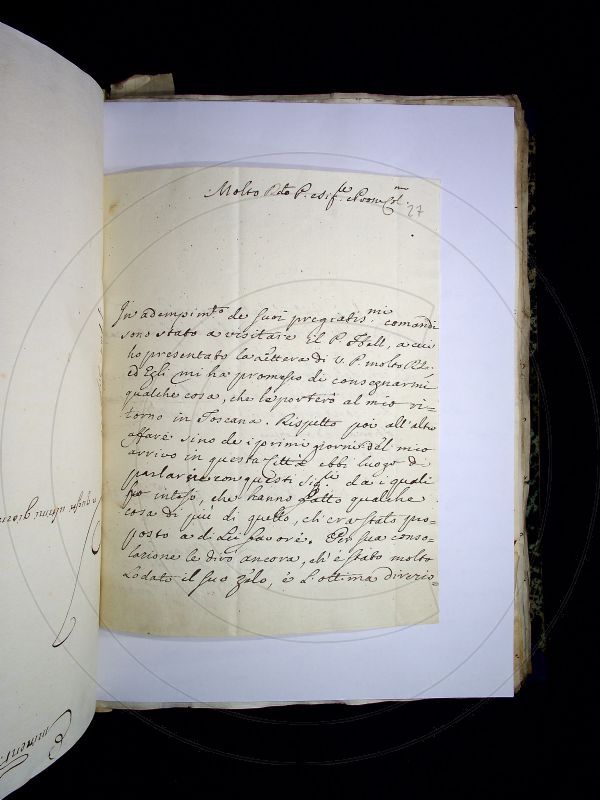 Molto Rdo P. e Sig.re e Pron Col.mo
27
In adempim.to de suoi pregiatis.mi comandi
sono stato a visitare il P. Hell, a cui
ho presentato la lettera di V. P. molto R.da
ed Egli mi ha promesso di consegnarmi
qualche cosa, che le porterò al mio ri-
torno in Toscana. Rispetto poi all'altro
affare sino de i primi giorni del mio
arrivo in questa Città ebbi luogo di
parlarne con questi Sig.ri da i quali
fu inteso, che hanno fatto qualche
cosa di più di quello, ch'era stato pro-
posto a di Lei favore. Per sua conso-
lazione le dirò ancora, ch'è stato molto
Lodato il suo zelo, e l'ottima direzio-